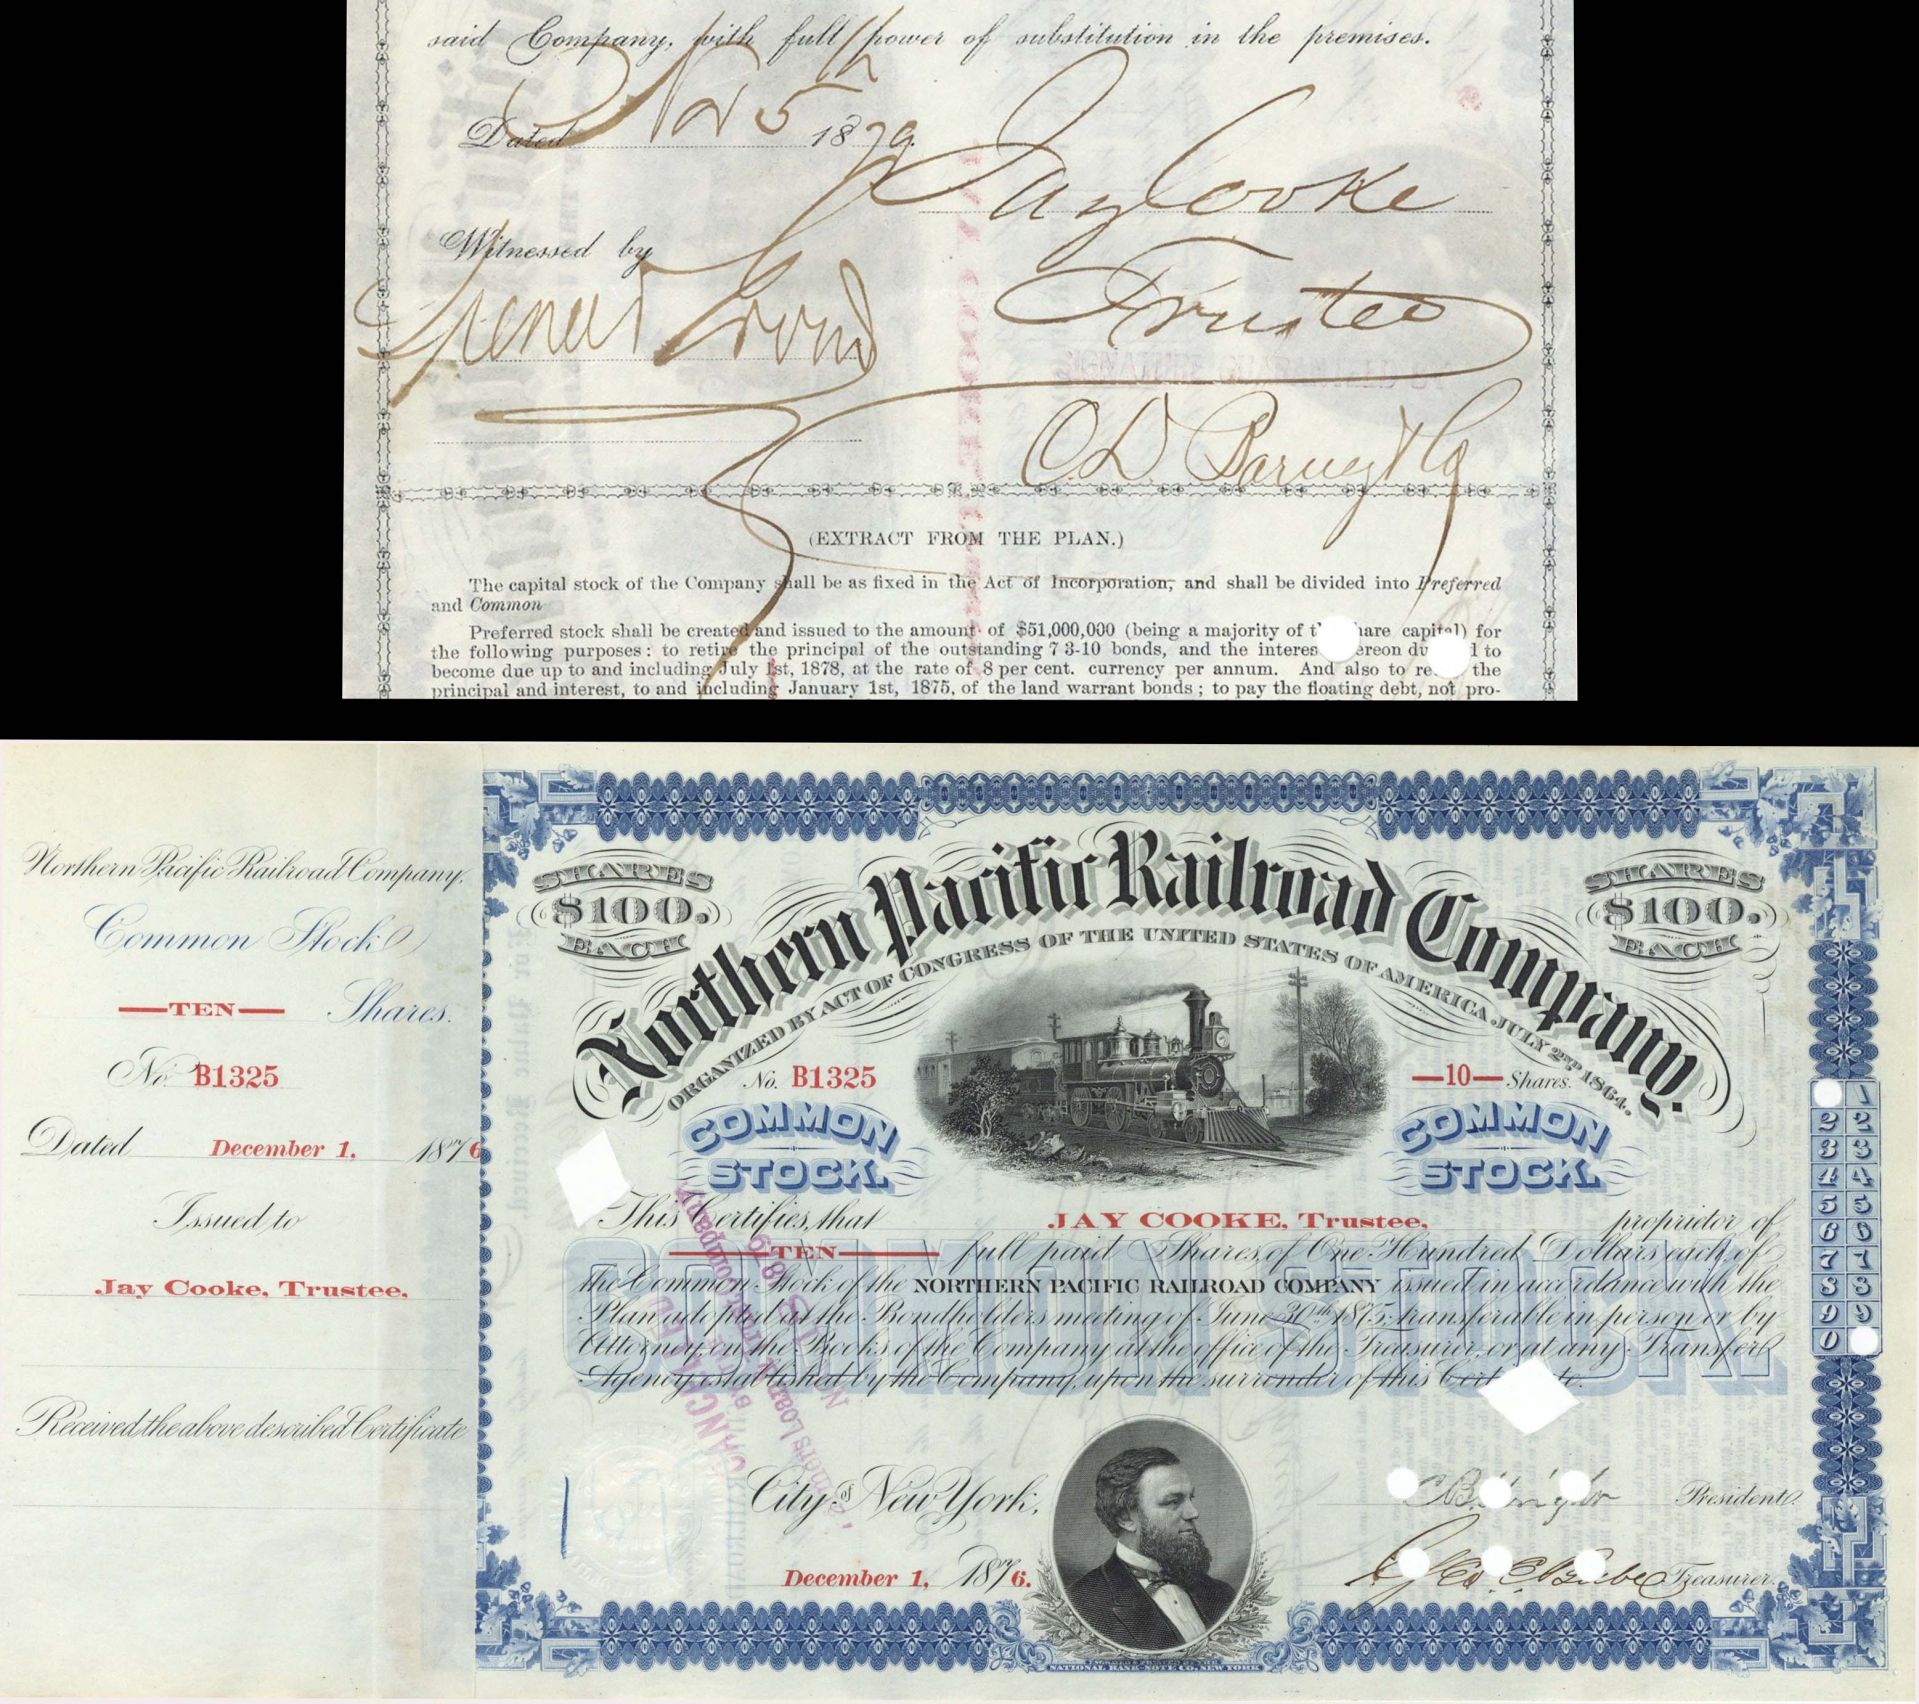 said Company, with full power of substitution in the premises.
Dated Nov 5th 1879.
Jay Cooke
Witnessed by
Trustee
C. D. Barney & Co
(EXTRACT FROM THE PLAN.)
The capital stock of the Company shall be as fixed in the Act of Incorporation, and shall be divided into Preferred
and Common
Preferred stock shall be created and issued to the amount of $51,000,000 (being a majority of capital) for
the following purposes: to retire the principal of the outstanding 7 3-10 bonds, and the to
become due up to and including July 1st, 1878, at the rate of 8 per cent. currency per annum. And also to the
principal and interest, to and including January 1st, 1875, of the land warrant bonds; to pay the floating debt, not pro-
Northern Pacific Railroad Company.
Common Stock
TEN Shares.
No. B1325
Dated December 1, 1876
Issued to
Jay Cooke, Trustee,
Received the above described Certificate
SHARES $100. EACH
SHARES $100. EACH
Northern Pacific Railroad Company.
ORGANIZED BY ACT OF CONGRESS OF THE UNITED STATES OF AMERICA JULY 2ND 1864.
No. B1325
—10— Shares.
COMMON STOCK.
COMMON STOCK.
This Certifies, that JAY COOKE, Trustee, proprietor of
TEN full paid Shares, of One Hundred Dollars each, of
the Common Stock of the NORTHERN PACIFIC RAILROAD COMPANY issued in accordance with the
Plan adopted at the Bondholders meeting of June 30th 1875; transferable in person or by
Attorney, on the Books of the Company at the office of the Treasurer, or at any Transfer
Agency established by the Company, upon the surrender of this
COMMON STOCK.
CANCELLED
City of New York,
December 1, 1876.
President.
Treasurer.
1
2 2
3 3
4 4
5 5
6 6
7 7
8 8
9 9
0
NATIONAL BANK-NOTE CO. NEW YORK